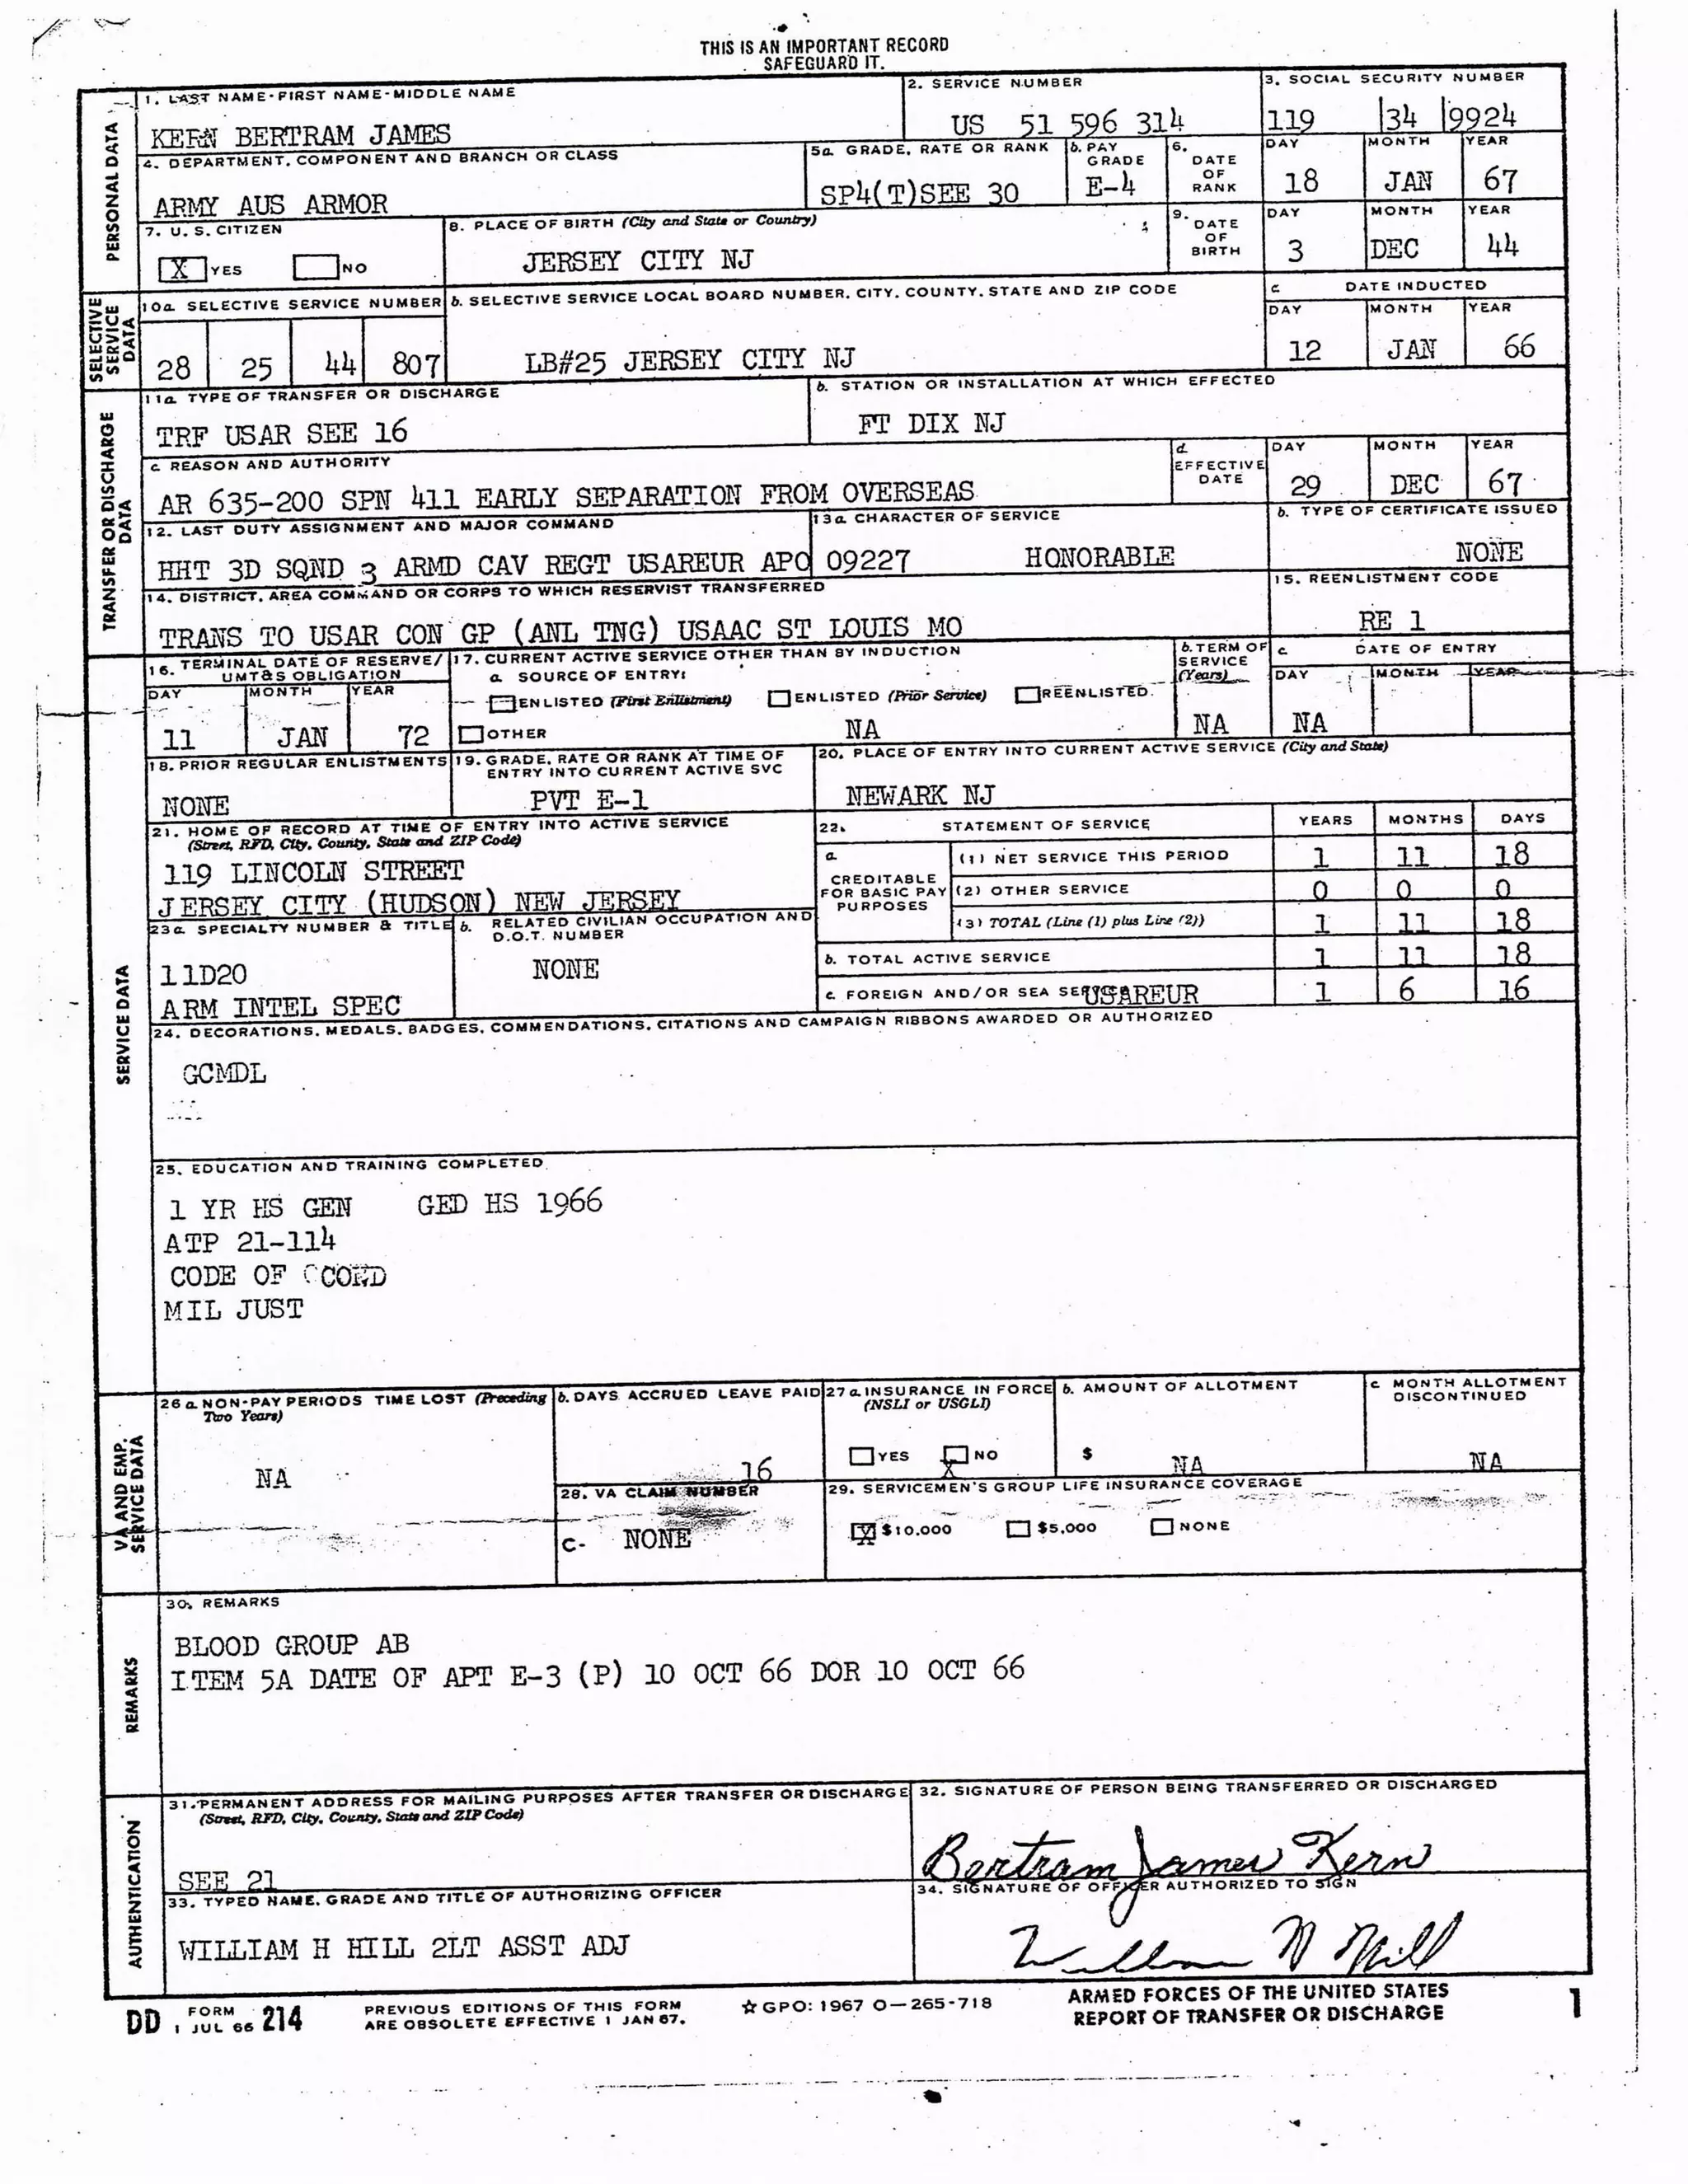 THIS IS AN IMPORTANT RECORD
SAFEGUARD IT.
PERSONAL DATA
1. LAST NAME-FIRST NAME-MIDDLE NAME
KERN BERTRAM JAMES
2. SERVICE NUMBER
US 51 596 314
3. SOCIAL SECURITY NUMBER
119 34 9924
4. DEPARTMENT, COMPONENT AND BRANCH OR CLASS
ARMY AUS ARMOR
5a. GRADE, RATE OR RANK
SP4(T)SEE 30
b. PAY GRADE
E-4
6. DATE OF RANK
DAY MONTH YEAR
18 JAN 67
7. U. S. CITIZEN
X YES NO
8. PLACE OF BIRTH (City and State or Country)
JERSEY CITY NJ
9. DATE OF BIRTH
DAY MONTH YEAR
3 DEC 44
SELECTIVE SERVICE DATA
10a. SELECTIVE SERVICE NUMBER
28 25 44 807
b. SELECTIVE SERVICE LOCAL BOARD NUMBER, CITY, COUNTY, STATE AND ZIP CODE
LB#25 JERSEY CITY NJ
c. DATE INDUCTED
DAY MONTH YEAR
12 JAN 66
TRANSFER OR DISCHARGE DATA
11a. TYPE OF TRANSFER OR DISCHARGE
TRF USAR SEE 16
b. STATION OR INSTALLATION AT WHICH EFFECTED
FT DIX NJ
c. REASON AND AUTHORITY
AR 635-200 SPN 411 EARLY SEPARATION FROM OVERSEAS
d. EFFECTIVE DATE
DAY MONTH YEAR
29 DEC 67
12. LAST DUTY ASSIGNMENT AND MAJOR COMMAND
HHT 3D SQND 3 ARMD CAV REGT USAREUR APO 09227
13a. CHARACTER OF SERVICE
HONORABLE
b. TYPE OF CERTIFICATE ISSUED
NONE
14. DISTRICT, AREA COMMAND OR CORPS TO WHICH RESERVIST TRANSFERRED
TRANS TO USAR CON GP (ANL TNG) USAAC ST LOUIS MO
15. REENLISTMENT CODE
RE 1
SERVICE DATA
16. TERMINAL DATE OF RESERVE/ UMT&S OBLIGATION
DAY MONTH YEAR
11 JAN 72
17. CURRENT ACTIVE SERVICE OTHER THAN BY INDUCTION
a. SOURCE OF ENTRY:
ENLISTED (First Enlistment) ENLISTED (Prior Service) REENLISTED
OTHER NA
b. TERM OF SERVICE (Years)
NA
c. DATE OF ENTRY
DAY MONTH YEAR
NA
18. PRIOR REGULAR ENLISTMENTS
NONE
19. GRADE, RATE OR RANK AT TIME OF ENTRY INTO CURRENT ACTIVE SVC
PVT E-1
20. PLACE OF ENTRY INTO CURRENT ACTIVE SERVICE (City and State)
NEWARK NJ
21. HOME OF RECORD AT TIME OF ENTRY INTO ACTIVE SERVICE
(Street, RFD, City, County, State and ZIP Code)
119 LINCOLN STREET
JERSEY CITY (HUDSON) NEW JERSEY
22. STATEMENT OF SERVICE YEARS MONTHS DAYS
a. CREDITABLE FOR BASIC PAY PURPOSES
(1) NET SERVICE THIS PERIOD 1 11 18
(2) OTHER SERVICE 0 0 0
(3) TOTAL (Line (1) plus Line (2)) 1 11 18
b. TOTAL ACTIVE SERVICE 1 11 18
c. FOREIGN AND/OR SEA SE USAREUR 1 6 16
23a. SPECIALTY NUMBER & TITLE
11D20
ARM INTEL SPEC
b. RELATED CIVILIAN OCCUPATION AND D.O.T. NUMBER
NONE
24. DECORATIONS, MEDALS, BADGES, COMMENDATIONS, CITATIONS AND CAMPAIGN RIBBONS AWARDED OR AUTHORIZED
GCMDL
25. EDUCATION AND TRAINING COMPLETED
1 YR HS GEN GED HS 1966
ATP 21-114
CODE OF
MIL JUST
VA AND EMP. SERVICE DATA
26a. NON-PAY PERIODS TIME LOST (Preceding Two Years)
NA
b. DAYS ACCRUED LEAVE PAID
16
27a. INSURANCE IN FORCE (NSLI or USGLI)
YES X NO
b. AMOUNT OF ALLOTMENT
$ NA
c. MONTH ALLOTMENT DISCONTINUED
NA
28. VA CLAIM NUMBER
C- NONE
29. SERVICEMEN'S GROUP LIFE INSURANCE COVERAGE
X $10,000 $5,000 NONE
REMARKS
30. REMARKS
BLOOD GROUP AB
ITEM 5A DATE OF APT E-3 (P) 10 OCT 66 DOR 10 OCT 66
AUTHENTICATION
31. PERMANENT ADDRESS FOR MAILING PURPOSES AFTER TRANSFER OR DISCHARGE
(Street, RFD, City, County, State and ZIP Code)
SEE 21
32. SIGNATURE OF PERSON BEING TRANSFERRED OR DISCHARGED
Bertram James Kern
33. TYPED NAME, GRADE AND TITLE OF AUTHORIZING OFFICER
WILLIAM H HILL 2LT ASST ADJ
34. SIGNATURE OF OFFICER AUTHORIZED TO SIGN
William H Hill
DD FORM 1 JUL 66 214
PREVIOUS EDITIONS OF THIS FORM
ARE OBSOLETE EFFECTIVE 1 JAN 67.
☆ GPO: 1967 O—265-718
ARMED FORCES OF THE UNITED STATES
REPORT OF TRANSFER OR DISCHARGE
1